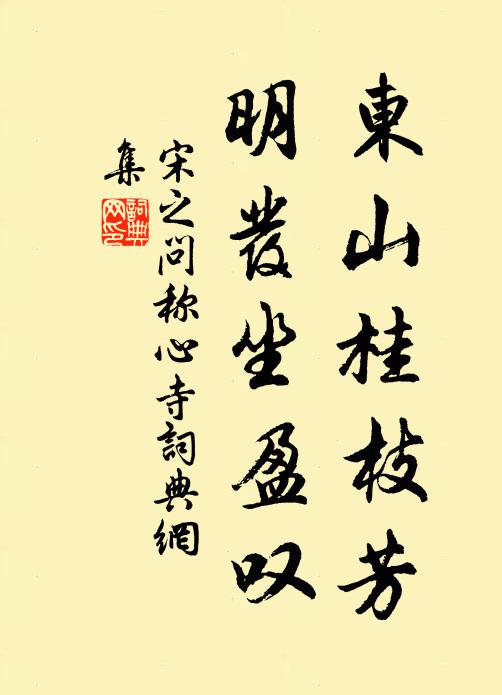 東山桂枝芳
明發坐盈叹
宋之问称心寺詞典網
集
詞典網印